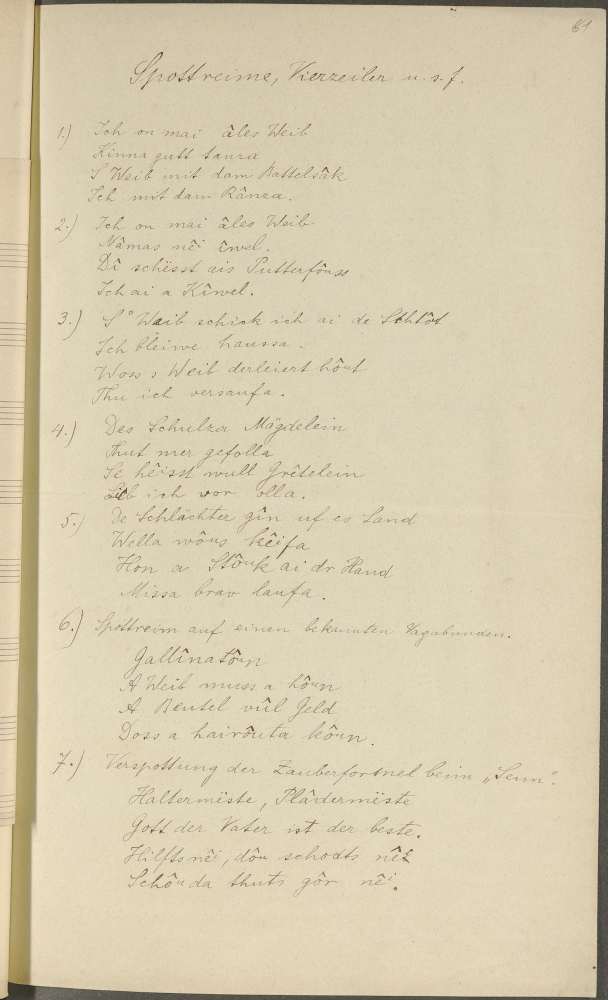 61
Spottreime, Vierzeiler u. s. f.
1.) Ich on mai âles Weib
Kinna gutt tanza
S Weib mit dam Battelsâk
Ich mit dam Rânza.
2.) Ich on mai âles Weib
Nâmas nêi êwel.
Dî schësst ais Putterfôuss
Ich ai a Kîwel.
3.) S° Waib schick ich ai de Schlôt
Ich bleiwe haussa.
Woss s Weib derleiert hôut
Thu ich versaufa.
4.) Des Schulza Mägdelein
Thut mer gefolla
Sê hêisst wull Grêtelein
Lieb ich vor olla.
5.) De Schlächter gîn uf es Land
Wella wôus kêifa
Hon a Stôuk ai dr Hand
Missa brav laufa.
6.) Spottreim auf einen bekannten Vagabunden.
Gallînatôun
A Weib muss a hôun
A Beutel vûl Geld
Doss a hairôuta kôun.
7.) Verspottung der Zauberformel beim „Senn".
Haltermëste, Plâdermëste
Gott der Vater ist der beste.
Hilfts nêi, dôu schodts nêi
Schôuda thuts gôr nêi.